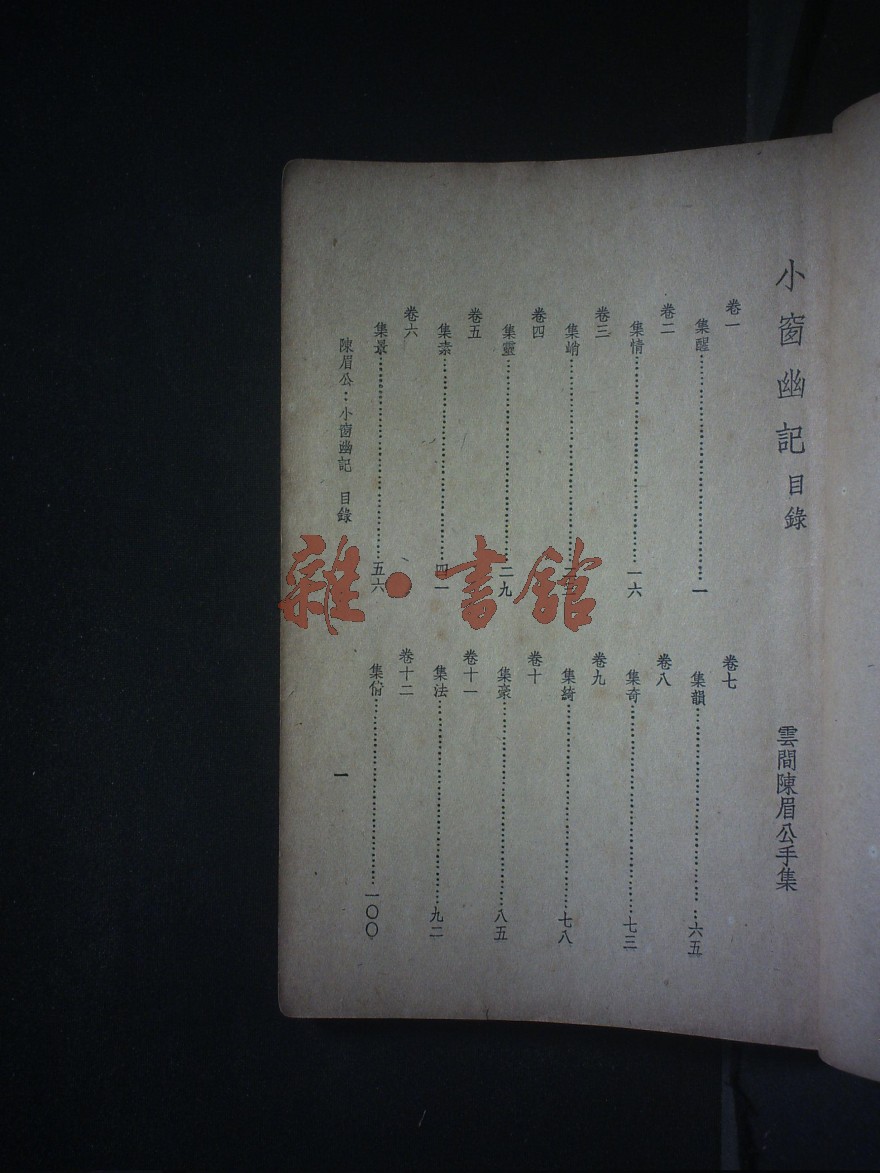 小窗幽記 目錄
雲間陳眉公手集
卷一
集醒……一
卷二
集情……一六
卷三
集峭……
卷四
集靈……二九
卷五
集素……四一
卷六
集景……五六
卷七
集韻……六五
卷八
集奇……七三
卷九
集綺……七八
卷十
集豪……八五
卷十一
集法……九二
卷十二
集倩……一〇〇
陳眉公：小窗幽記 目錄
一
雜·書館